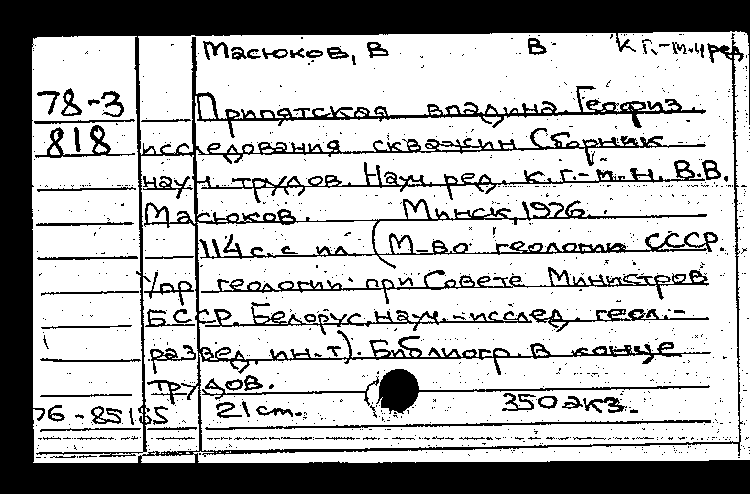 Масюков, В В к г.-м.н ред
78-3 Припятская впадина. Геофиз.
818 исследования скважин Сборник
науч. трудов. Науч. ред. к.г.-м.н. В.В.
Масюков. Минск, 1976.
114 с. с ил. (М-во геологии СССР.
Упр геологии при Совете Министров
БССР. Белорус. науч.-исслед. геол.-
развед. ин-т). Библиогр. в конце
трудов.
76-85185 21 ст. 350 экз.